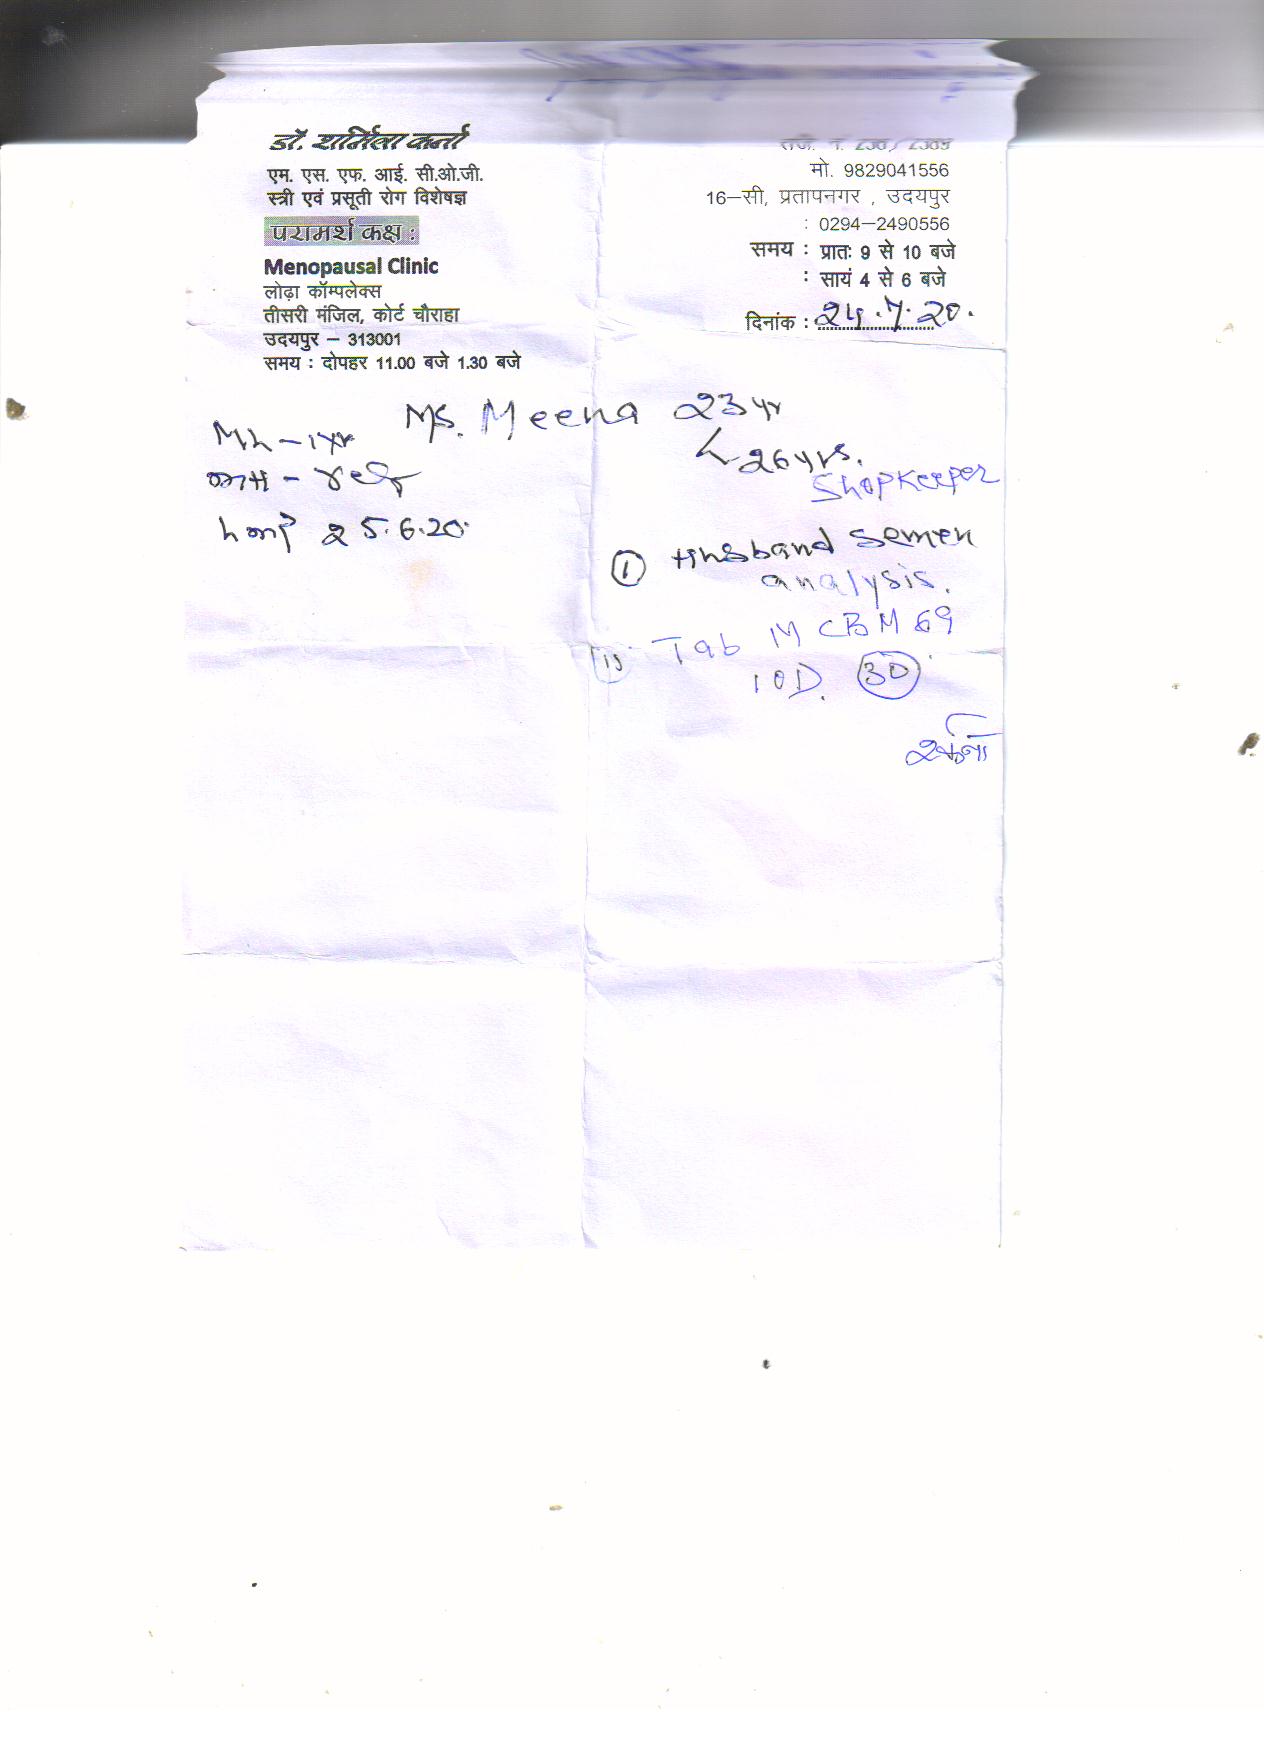 डॉ. शर्मिला कर्ना
एम. एस. एफ. आई. सी.ओ.जी.
स्त्री एवं प्रसूती रोग विशेषज्ञ
परामर्श कक्ष :
Menopausal Clinic
लोढ़ा कॉम्पलेक्स
तीसरी मंजिल, कोर्ट चौराहा
उदयपुर – 313001
समय : दोपहर 11.00 बजे 1.30 बजे
मो. 9829041556
16–सी, प्रतापनगर , उदयपुर
: 0294–2490556
समय : प्रातः 9 से 10 बजे
: सायं 4 से 6 बजे
दिनांक : 24.7.20.
Ms. Meena 23 yr
26 yrs.
Shopkeeper
Mh – 1yr
25.6.20.
① Husband semen
analysis.
Tab MCBM 69
1 OD. 30